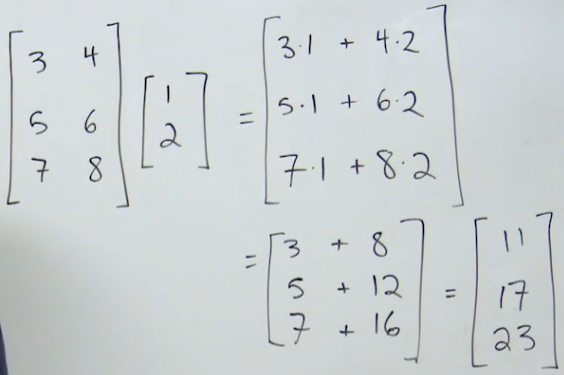 [3 4; 5 6; 7 8] [1; 2] = [3·1 + 4·2; 5·1 + 6·2; 7·1 + 8·2]
= [3 + 8; 5 + 12; 7 + 16] = [11; 17; 23]